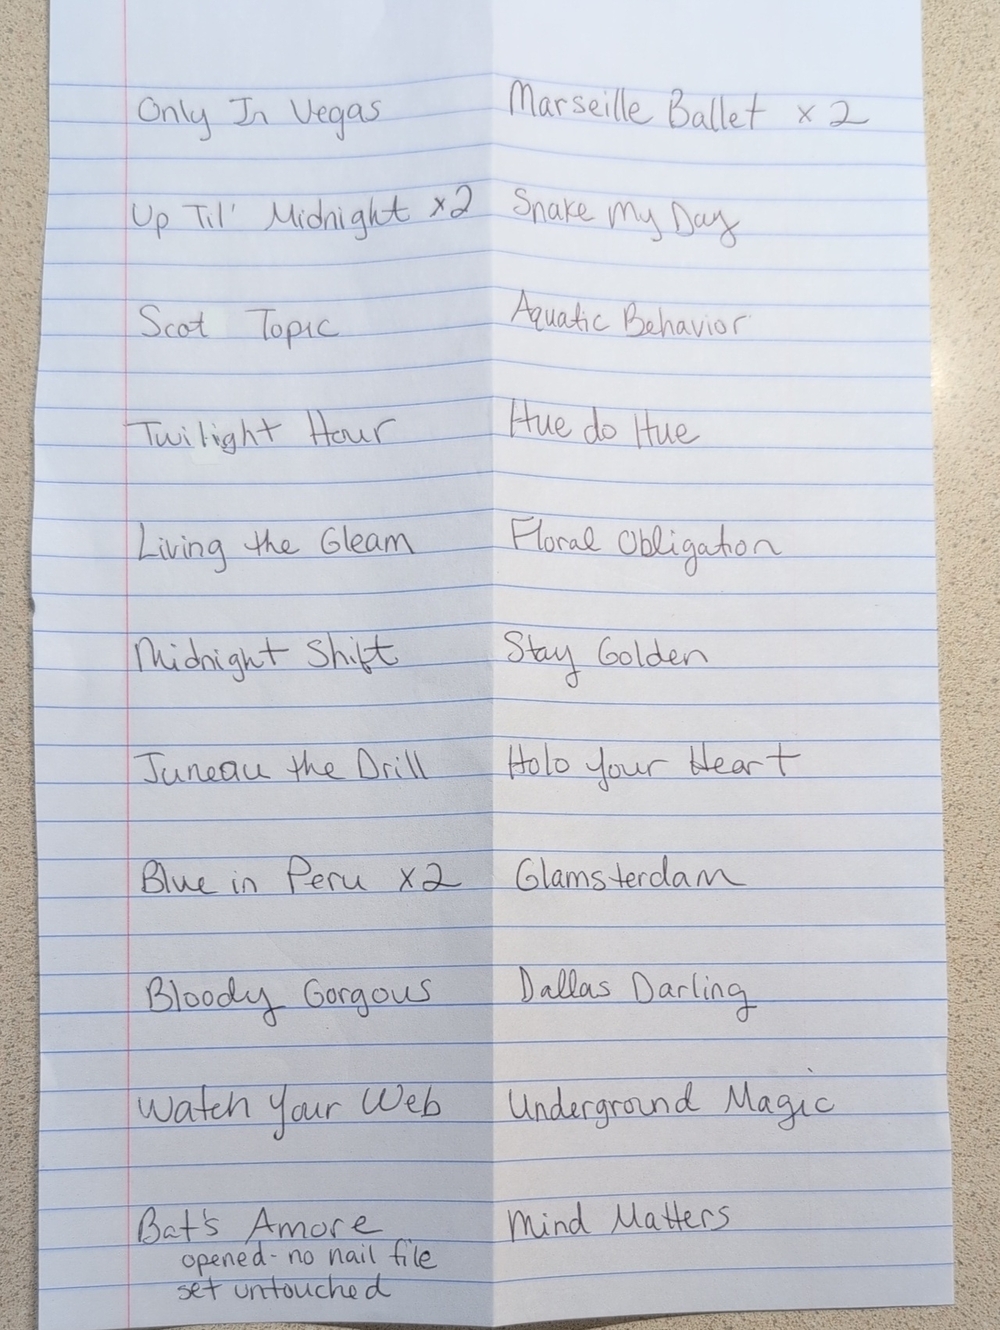 Only In Vegas
Up Til' Midnight x2
Scot Topic
Twilight Hour
Living the Gleam
Midnight Shift
Juneau the Drill
Blue in Peru x2
Bloody Gorgous
Watch Your Web
Bat's Amore
opened - no nail file
set untouched
Marseille Ballet x2
Snake My Day
Aquatic Behavior
Hue do Hue
Floral Obligation
Stay Golden
Holo Your Heart
Glamsterdam
Dallas Darling
Underground Magic
Mind Matters